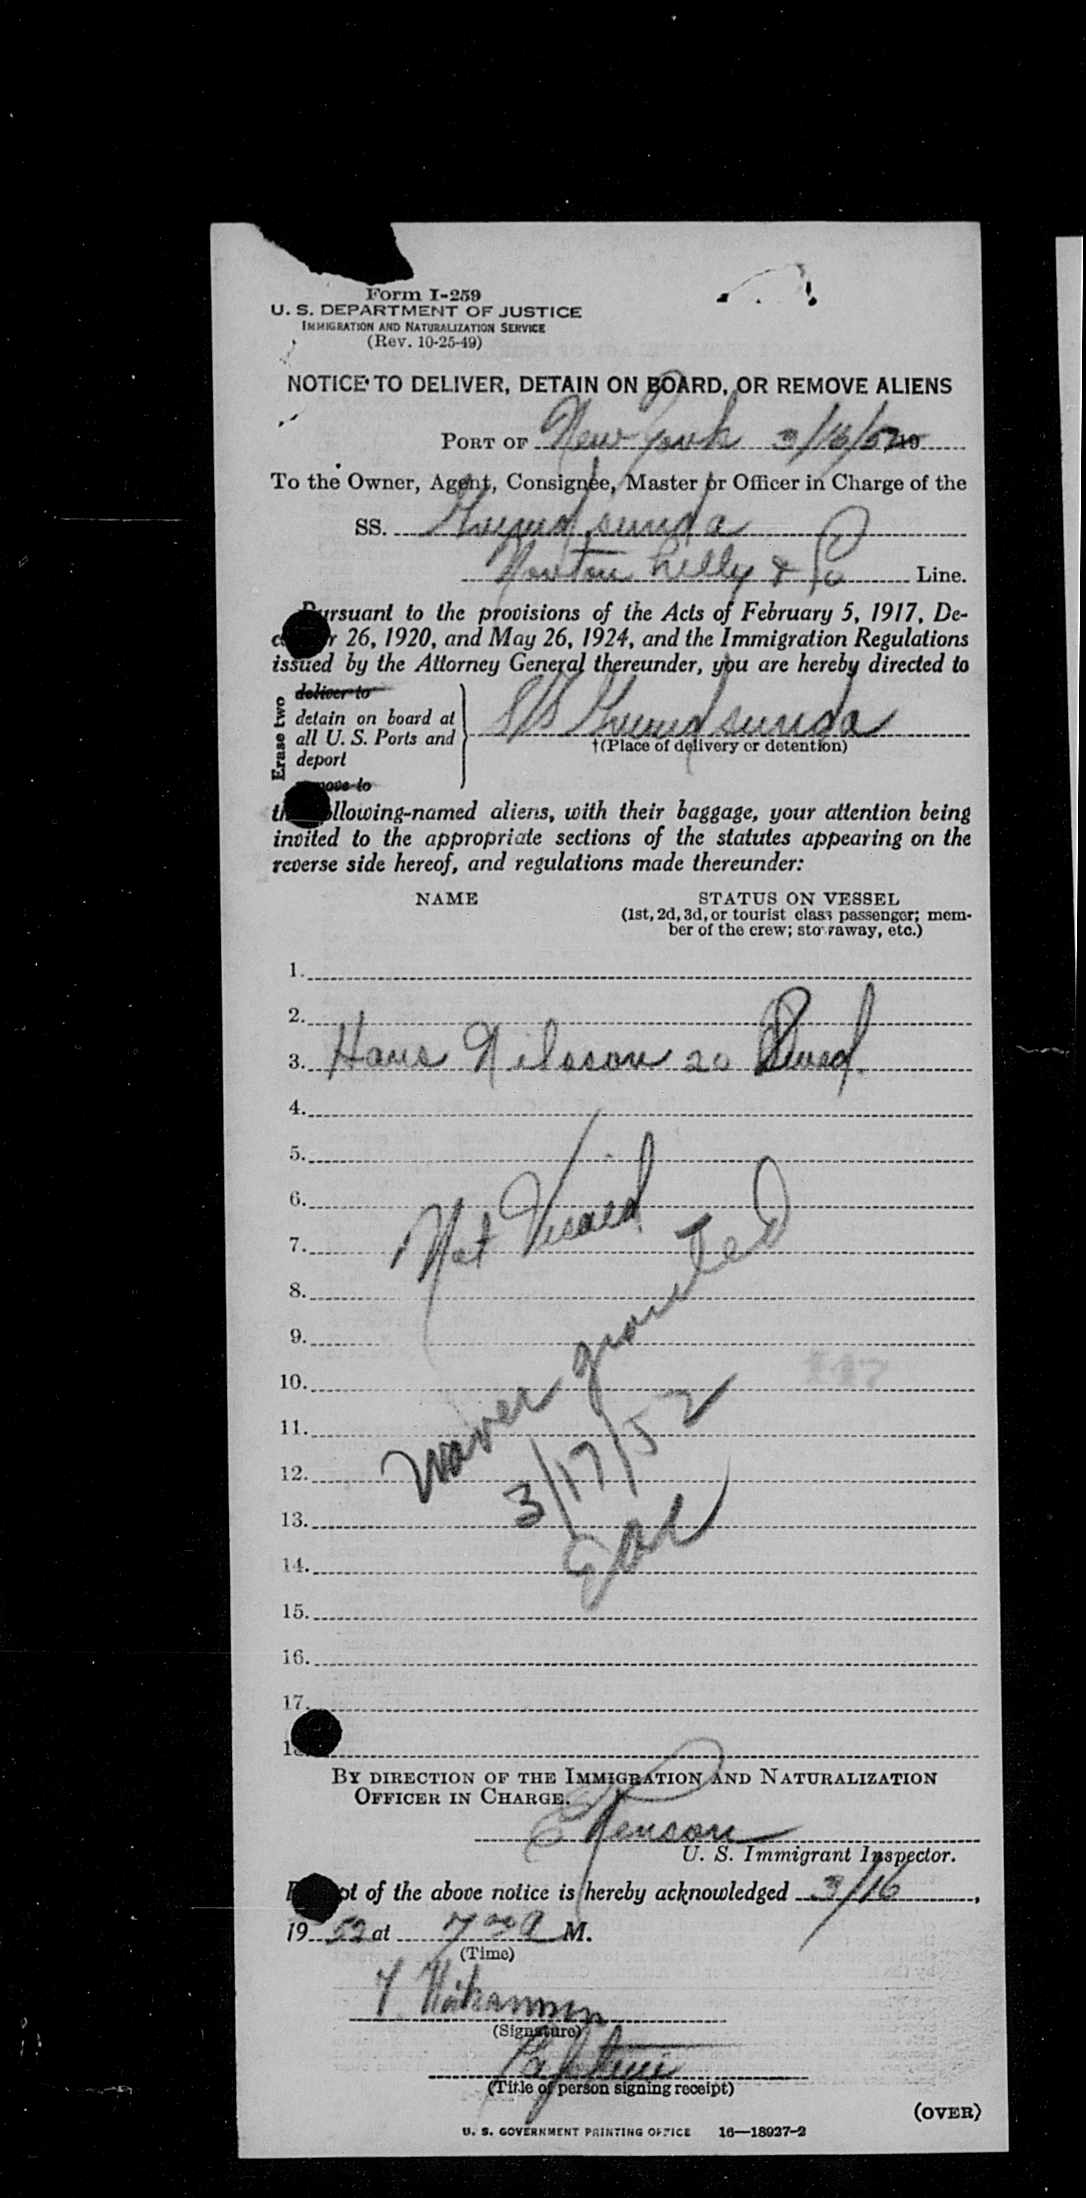 Form I-259
U. S. DEPARTMENT OF JUSTICE
IMMIGRATION AND NATURALIZATION SERVICE
(Rev. 10-25-49)
NOTICE TO DELIVER, DETAIN ON BOARD, OR REMOVE ALIENS
PORT OF New York 3/16/52 19
To the Owner, Agent, Consignee, Master or Officer in Charge of the
SS.
Norton Lilly & Co Line.
Pursuant to the provisions of the Acts of February 5, 1917, De-
r 26, 1920, and May 26, 1924, and the Immigration Regulations
issued by the Attorney General thereunder, you are hereby directed to
Erase two
deliver to
detain on board at
all U. S. Ports and
deport
remove to
S/S
†(Place of delivery or detention)
the following-named aliens, with their baggage, your attention being
invited to the appropriate sections of the statutes appearing on the
reverse side hereof, and regulations made thereunder:
NAME STATUS ON VESSEL
(1st, 2d, 3d, or tourist class passenger; mem-
ber of the crew; stowaway, etc.)
1.
2.
3. Hans Nilsson 20 Swed.
4.
5.
6.
7.
Not Visaed
8.
9.
10.
147
11.
12.
waver granted
3/17/52
13.
14.
15.
16.
17.
18.
BY DIRECTION OF THE IMMIGRATION AND NATURALIZATION
OFFICER IN CHARGE.
U. S. Immigrant Inspector.
Receipt of the above notice is hereby acknowledged 3/16,
19 52 at 7 30 A M.
(Time)
(Signature)
Captain
(Title of person signing receipt)
(OVER)
U. S. GOVERNMENT PRINTING OFFICE 16—18927-2